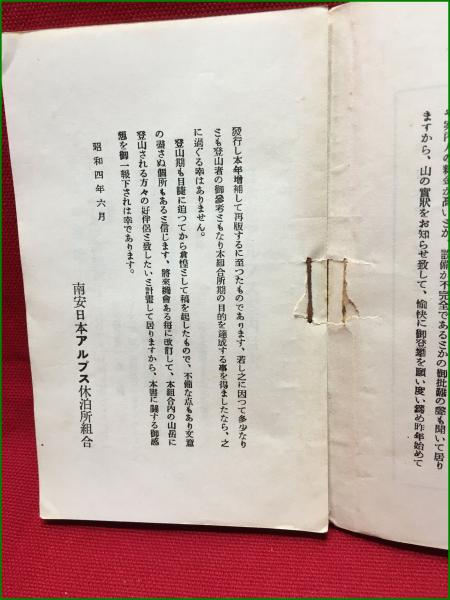 ますから、山の實狀をお知らせ致して、愉快に御登攀を願い度い爲め昨年始めて
發行し本年增補して再版するに至つたものであります、若し之に因つて多少なり
とも登山者の御參考ともなり本組合所期の目的を達成する事を得ましたなら、之
に過ぐる幸はありません。
登山期も目睫に迫つてから倉惶として稿を起したもので、不備な点もあり文意
の盡さぬ個所もあると信じます、將來機會ある每に改訂して、本組合內の山岳に
登山される方々の好伴侶と致したいと計畫して居りますから、本書に關する御感
想を御一報下されは幸であります。
昭和四年六月
南安日本アルプス休泊所組合